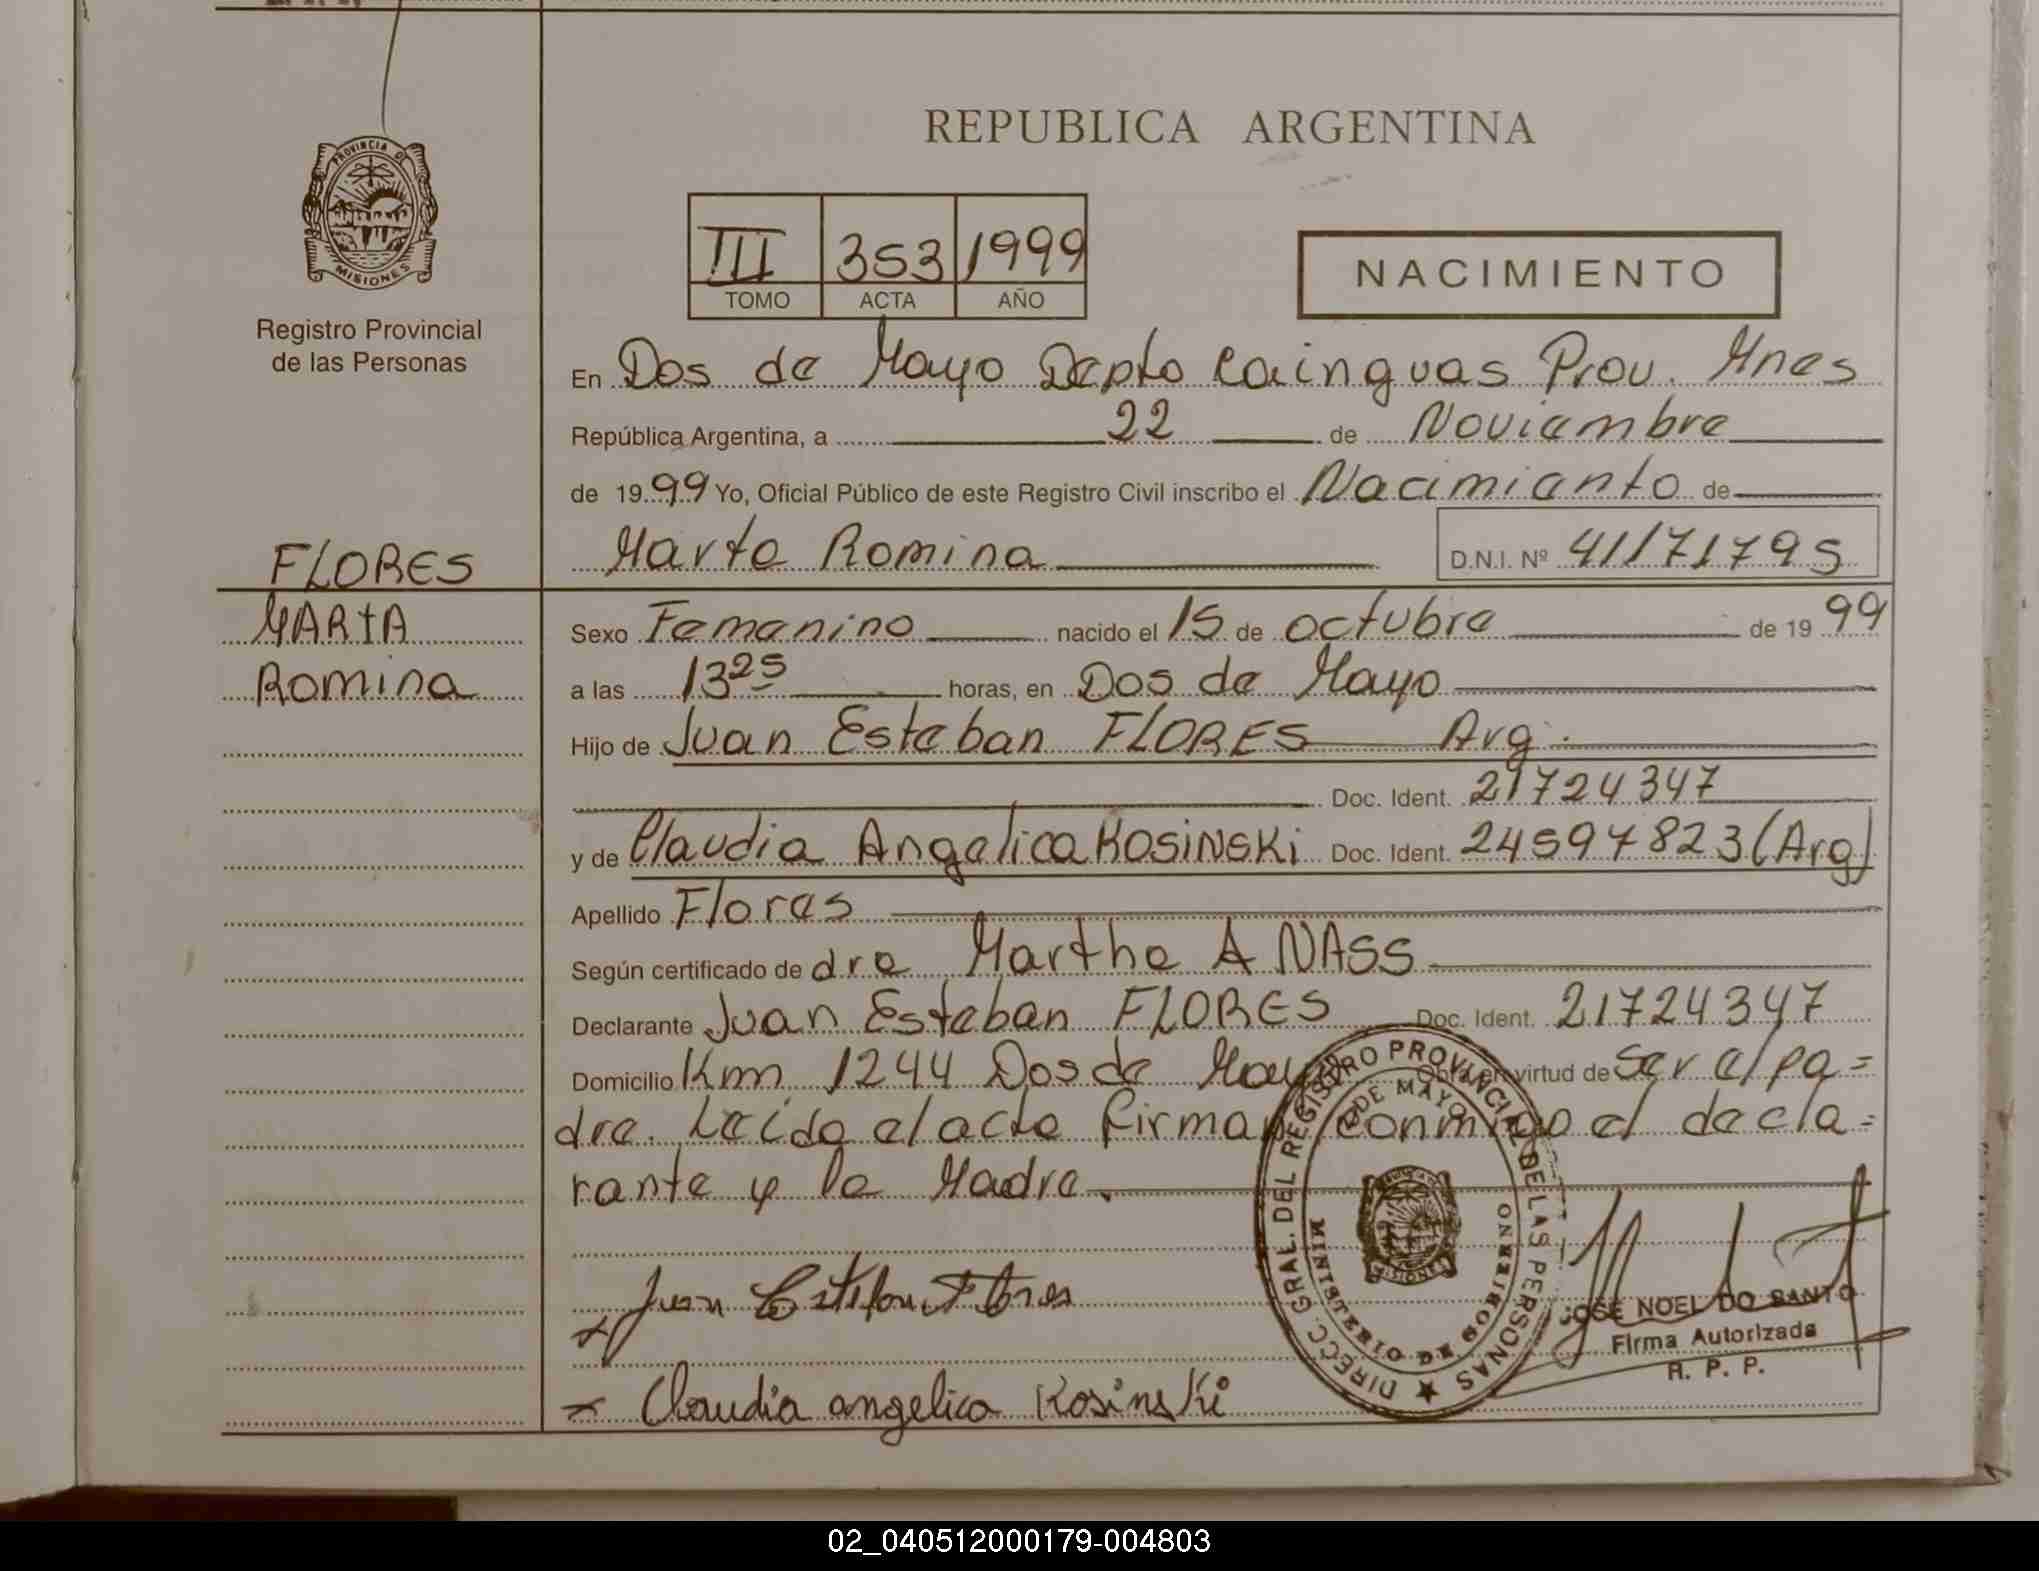 REPUBLICA ARGENTINA
PROVINCIA DE
MISIONES
Registro Provincial
de las Personas
III 353 1999
TOMO ACTA AÑO
NACIMIENTO
En Dos de Mayo Depto Cainguas Prov. Mnes
República Argentina, a 22 de Noviembre
de 1999 Yo, Oficial Público de este Registro Civil inscribo el Nacimiento de
FLORES
Marta Romina D.N.I. Nº 41171795
MARtA
Sexo Femenino nacido el 15 de octubre de 1999
Romina
a las 13 25 horas, en Dos de Mayo
Hijo de Juan Esteban FLORES Arg.
Doc. Ident. 21724347
y de Claudia Angelica KOSiNSKi Doc. Ident. 24597823 (Arg)
Apellido Flores
Según certificado de dra Martha A NASS
Declarante Juan Esteban FLORES Doc. Ident. 21724347
Domicilio Km 1244 Dos de Mayo Obra en virtud de Ser el pa=
dre. Leida el acta firman conmigo el decla=
rante y la Madre.
DIRECC. GRAL. DEL REGISTRO PROVINCIAL DE LAS PERSONAS
2 DE MAYO
MINISTERIO DE GOBIERNO
MISIONES
Juan Esteban Flores
JOSE NOEL DO SANTO
Firma Autorizada
R. P. P.
x Claudia angelica Kosinski
02_040512000179-004803